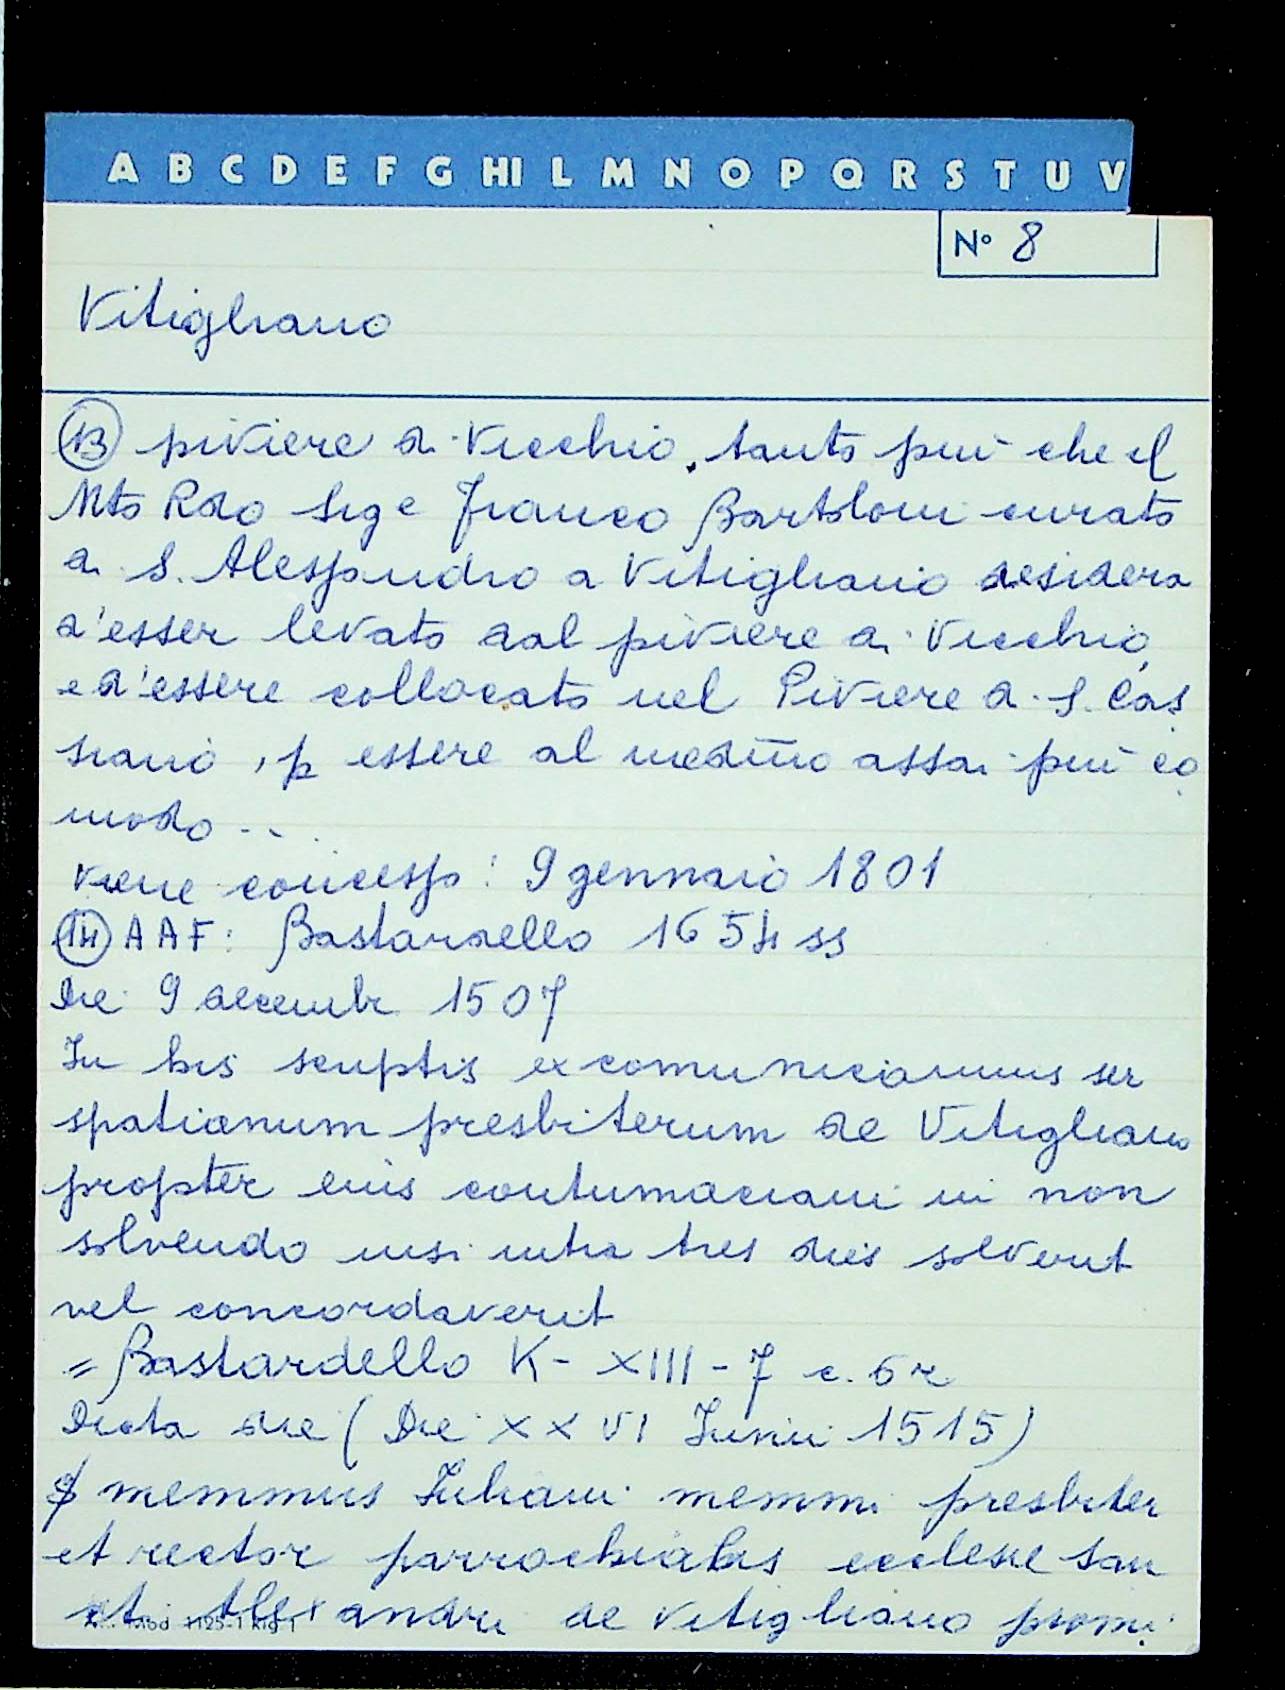 A B C D E F G HI L M N O P Q R S T U V
N° 8
Vitigliano
13 piviere di Vicchio, tanto più che il
Mto Rdo Sige Franco Bartoloni curato
di S. Alessandro a Vitigliano desidera
d'esser levato dal piviere di Vicchio,
e d'essere collocato nel Piviere di S. Cas
siano, p essere al medmo assai più co
modo...
viene concesso: 9 gennaio 1801
14 AAF: Bastardello 1654 ss
Die 9 decembr 1507
In his scriptis excomunicamus ser
spatianum presbiterum de Vitigliano
propter eius contumaciam in non
solvendo nisi intra tres dies solverit
vel concordaverit
= Bastardello K- XIII - 7 c. 6r
Dicta die (Die XXVI Iunii 1515)
S memmus Iuliani memmi presbiter
et rector parrochialis ecclesie san
cti Alexandri de Vitigliano promi
Mod 1125-1 Rig 1